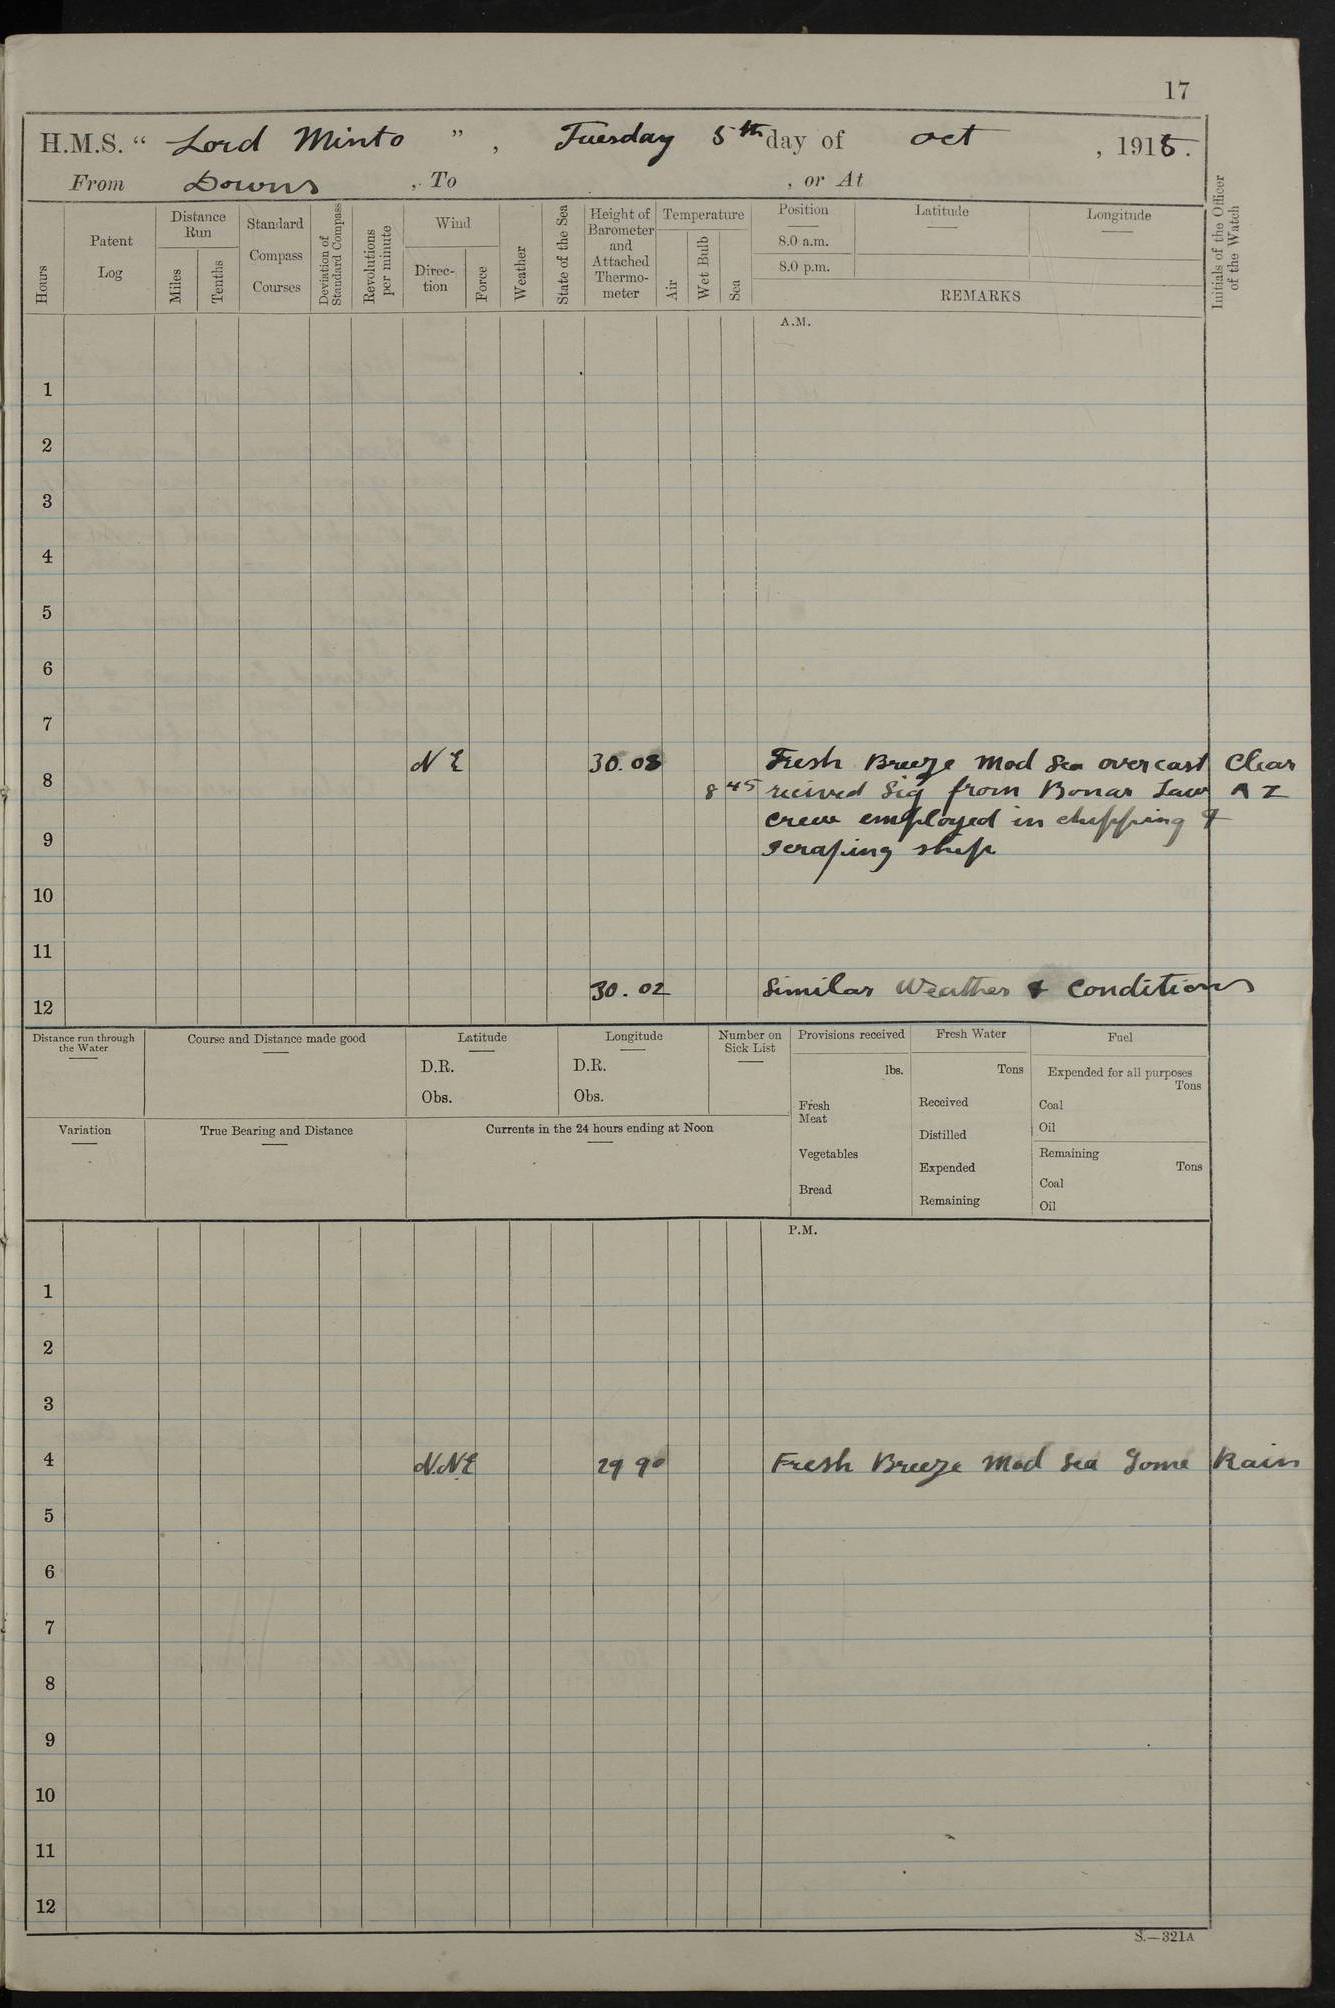 17
H.M.S. “ Lord Minto ” , Tuesday 5th day of Oct , 1915.
From Downs , To , or At
Hours
Patent Log
Distance Run
Miles
Tenths
Standard Compass Courses
Deviation of Standard Compass
Revolutions per minute
Wind
Direc-tion
Force
Weather
State of the Sea
Height of Barometer and Attached Thermo-meter
Temperature
Air
Wet Bulb
Sea
Position
8.0 a.m.
8.0 p.m.
Latitude
Longitude
REMARKS
Initials of the Officer of the Watch
A.M.
1
2
3
4
5
6
7
NE 30.08 Fresh Breeze Mod Sea overcast Clear
8 8 45 recived Sig from Bonar Law A I
crew employed in chipping &
9 scraping ship
10
11
12 30.02 Similar Weather & Conditions
Distance run through the Water
Course and Distance made good
Latitude
D.R.
Obs.
Longitude
D.R.
Obs.
Number on Sick List
Provisions received
lbs.
Fresh Meat
Vegetables
Bread
Fresh Water
Tons
Received
Distilled
Expended
Remaining
Fuel
Expended for all purposes
Tons
Coal
Oil
Remaining
Tons
Coal
Oil
Variation
True Bearing and Distance
Currents in the 24 hours ending at Noon
P.M.
1
2
3
4 N.N.E 29 90 Fresh Breeze Mod Sea Some Rain
5
6
7
8
9
10
11
12
S.—321A